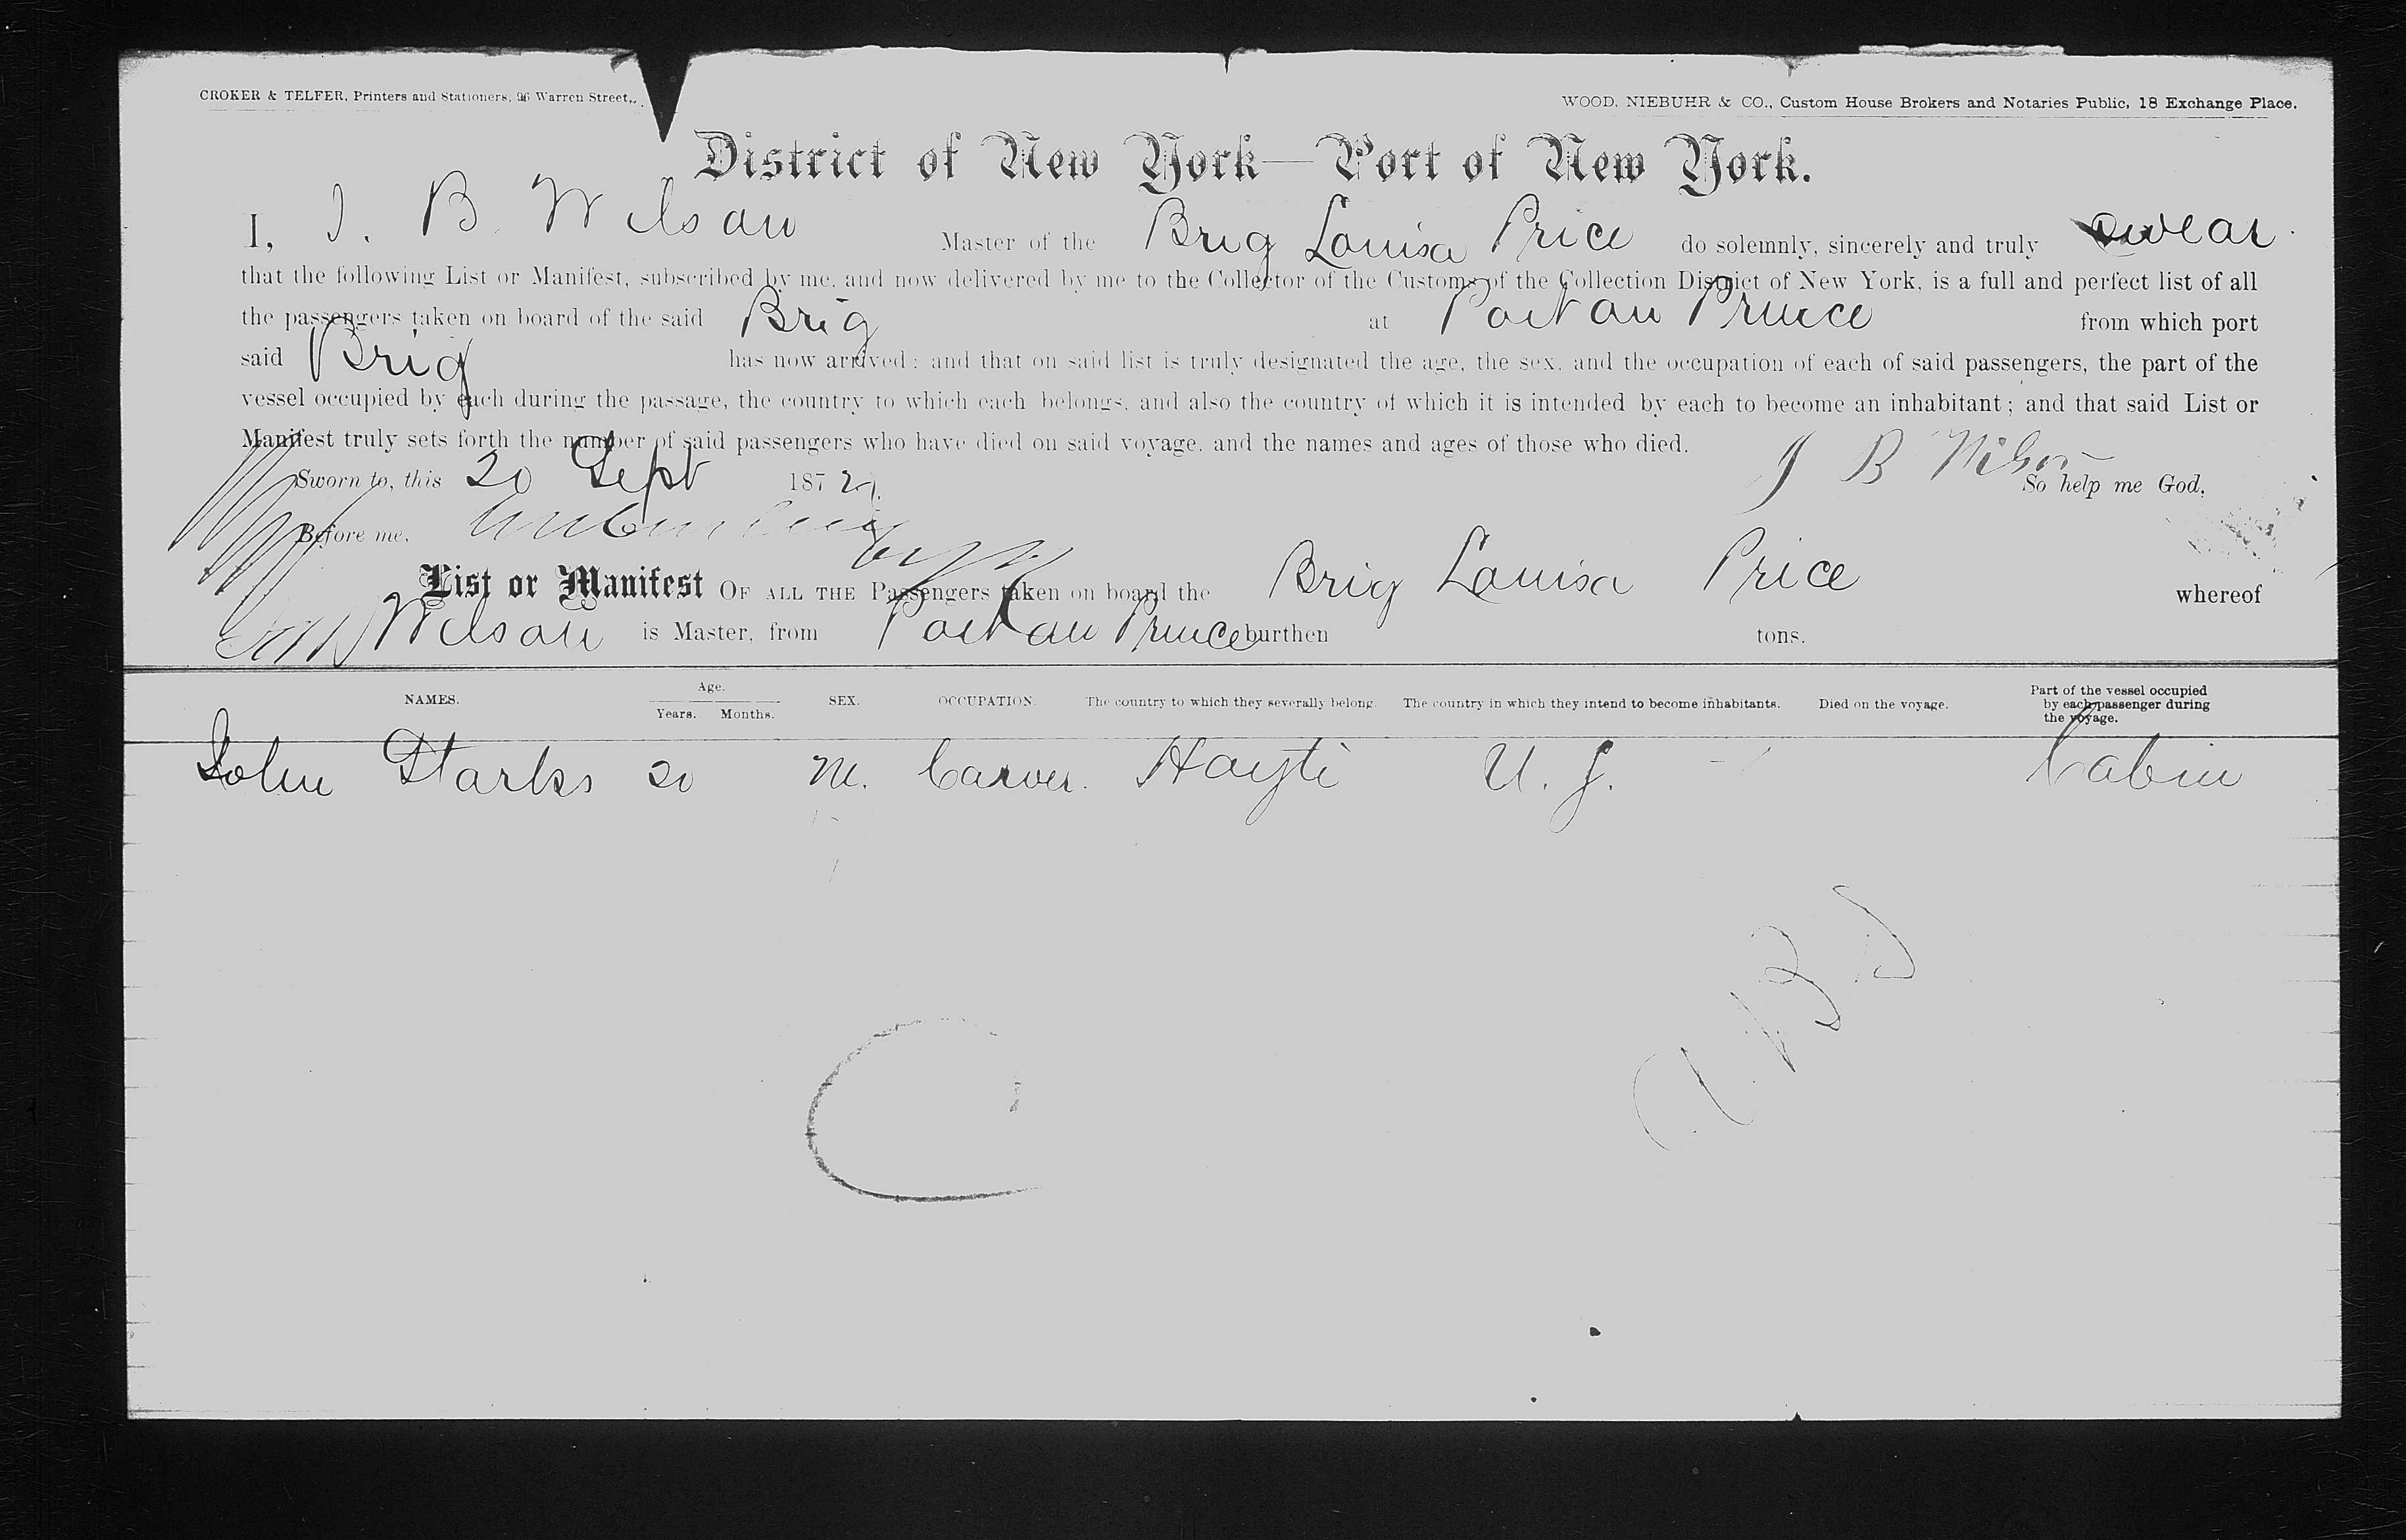 CROKER & TELFER, Printers and Stationers, 96 Warren Street,
WOOD, NIEBUHR & CO., Custom House Brokers and Notaries Public, 18 Exchange Place.
District of New York—Port of New York.
I, J. B. Wilson Master of the Brig Louisa Price do solemnly, sincerely and truly swear
that the following List or Manifest, subscribed by me, and now delivered by me to the Collector of the Customs of the Collection District of New York, is a full and perfect list of all
the passengers taken on board of the said Brig at Port au Prince from which port
said Brig has now arrived: and that on said list is truly designated the age, the sex, and the occupation of each of said passengers, the part of the
vessel occupied by each during the passage, the country to which each belongs, and also the country of which it is intended by each to become an inhabitant; and that said List or
Manifest truly sets forth the number of said passengers who have died on said voyage, and the names and ages of those who died.
Sworn to, this 20 Sept 1872. J B Wilson So help me God,
Before me,
List or Manifest OF ALL THE Passengers taken on board the Brig Louisa Price whereof
Wilson is Master, from Port au Prince burthen tons.
NAMES. Age. Years. Months. SEX. OCCUPATION. The country to which they severally belong. The country in which they intend to become inhabitants. Died on the voyage. Part of the vessel occupied by each passenger during the voyage.
John Starks 20 M. Carver. Hayti U. S. Cabin